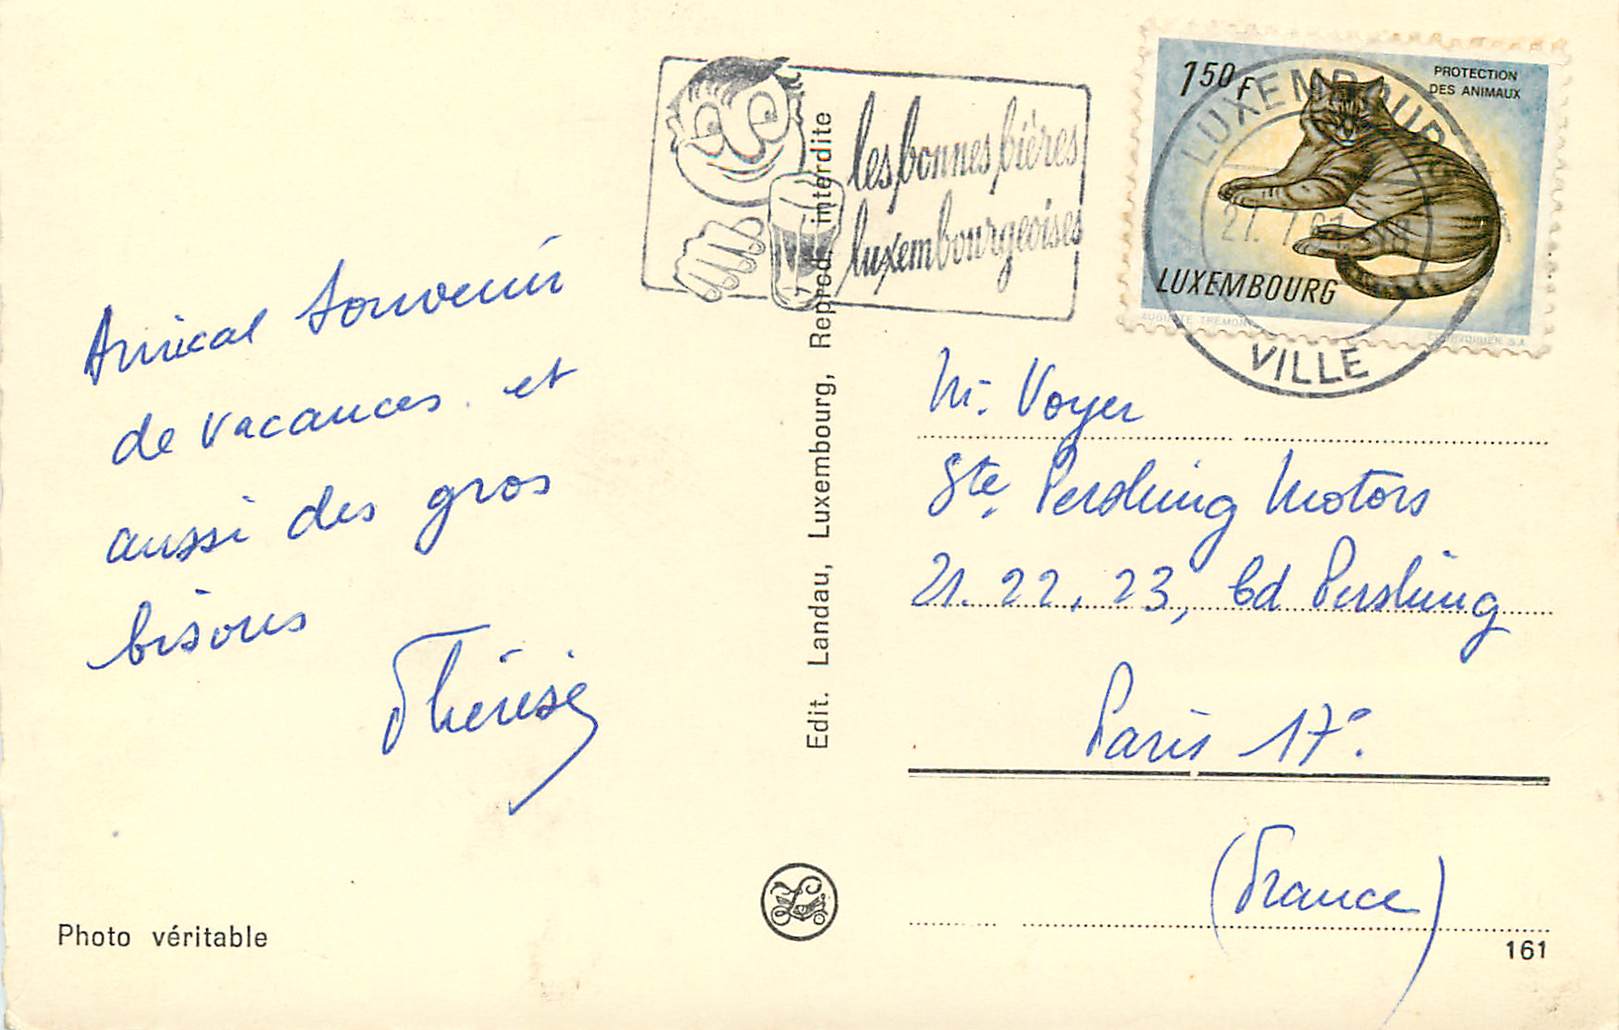 Amical souvenir
de vacances et
aussi des gros
bisous
Thérèse
Photo véritable
Edit. Landau, Luxembourg, Reprod. interdite
les bonnes bières
luxembourgeoises
150 F
PROTECTION
DES ANIMAUX
LUXEMBOURG
AUGUSTE TREMONT
LUXEMBOURG
VILLE
M. Voyer
Sté. Pershing Motors
21. 22, 23, Bd Pershing
Paris 17e.
(France)
161